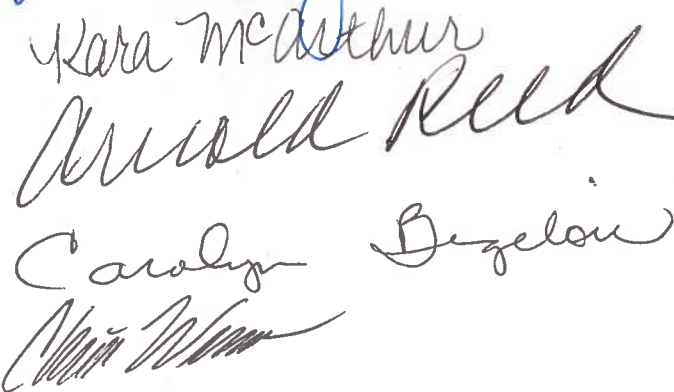 Kara McArthur
Arnold Reed
Carolyn Bigelow
Chris